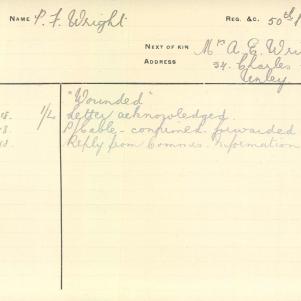 NAME P. F. Wright REG. &C. 50th
NEXT OF KIN Mrs A. E. Wri
ADDRESS 34. Charles
Unley.
"Wounded"
15. 1/L Letter acknowledged.
P/Cable - confirmed. forwarded
Reply from Commis. Information